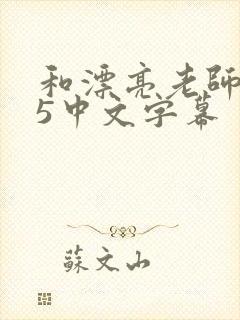 和漂亮老師
5中文字幕
蘇文山